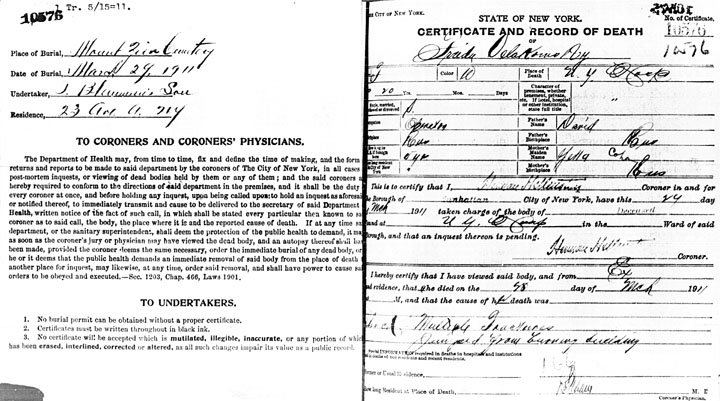 Tr. 5/15=11.
10576
Place of Burial, Mount Zion Cemetery
Date of Burial, March 29 1911
Undertaker,
Residence, 23 Ave A. NY
TO CORONERS AND CORONERS' PHYSICIANS.
The Department of Health may, from time to time, fix and define the time of making, and the form
returns and reports to be made to said department by the coroners of The City of New York, in all cases
post-mortem inquests, or viewing of dead bodies held by them or any of them; and the said coroners
hereby required to conform to the directions of said department in the premises, and it shall be the duty
every coroner at once, and before holding any inquest, upon being called upon to hold an inquest as aforesaid
or notified thereof, to immediately transmit and cause to be delivered to the secretary of said Department
Health, written notice of the fact of such call, in which shall be stated every particular then known to s
coroner as to said call, the body, the place where it is and the reported cause of death. If at any time sa
department, or the sanitary superintendent, shall deem the protection of the public health to demand, it ma
as soon as the coroner's jury or physician may have viewed the dead body, and an autopsy thereof shall ha
been made, provided the coroner deems the same necessary, order the immediate burial of any dead body, or
he or it deems that the public health demands an immediate removal of said body from the place of death t
another place for inquest, may likewise, at any time, order said removal, and shall have power to cause sa
orders to be obeyed and executed.—Sec. 1203, Chap. 466, Laws 1901.
TO UNDERTAKERS.
1. No burial permit can be obtained without a proper certificate.
2. Certificates must be written throughout in black ink.
3. No certificate will be accepted which is mutilated, illegible, inaccurate, or any portion of which
has been erased, interlined, corrected or altered, as all such changes impair its value as a public record.
THE CITY OF NEW YORK.
STATE OF NEW YORK.
No. of Certificate,
CERTIFICATE AND RECORD OF DEATH
10576
OF
10576
Frieda Velakowsky
Color W
Place of Death N.Y. Hosp
20 Yrs. Mos. Days
Character of premises, whether tenement, private, etc. If hotel, hospital or other institution, state full title
S.
Operator
Father's Name David
Rus
Father's Birthplace Rus
5 yrs
Mother's Maiden Name Yetta
Mother's Birthplace Rus
This is to certify that I, Coroner in and for
the Borough of Manhattan City of New York, have this 29 day
Mch 1911 taken charge of the body of Deceased
found at N.Y. Hosp in the Ward of said
Borough, and that an inquest thereon is pending.
Coroner.
I hereby certify that I have viewed said body, and from
and evidence, that she died on the 28 day of Mch 1911
M, and that the cause of her death was
Multiple Fractures
Jumped from burning building
Special INFORMATION required in deaths in hospitals and institutions
and in deaths of non-residents and recent residents.
Former or Usual Residence,
How long Resident at Place of Death,
M. D.
Coroner's Physician.